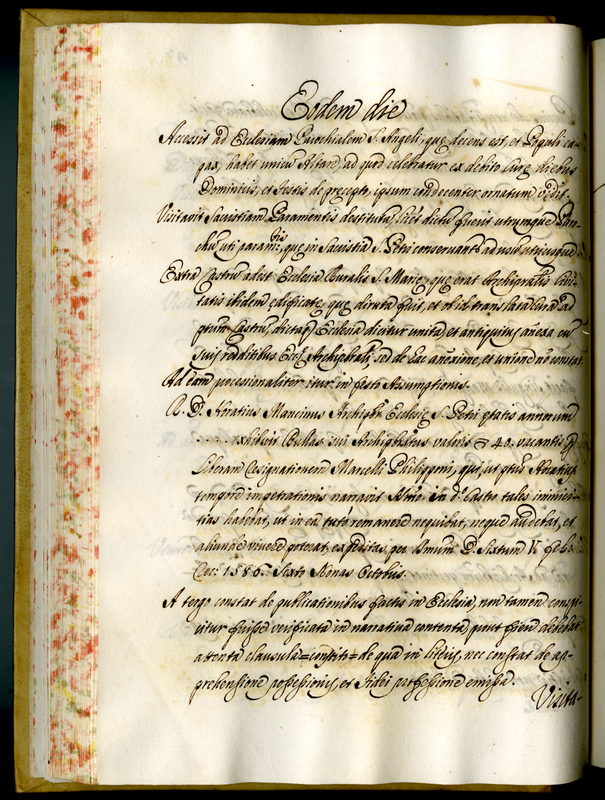 Eodem die
Accessit ad Ecclesiam Parochialem S. Angeli, que decens est, et Populi ca-
pax, habet unicū Altare, ad quod celebratur ex debito Curę diebus
Dominicis, et Festis de pręcepto, ipsum condecenter ornatum vidit.
Visitavit Sacristiam Paramentis destitutā, licet dictū fuerit utrumque Paro-
chū uti paramtis, que in Sacristia S. Petri conservantr ad usū utriusque
Extra Castrū adest Ecclesia Ruralis S. Marię, que erat Archipralis
tatis ibidem ędificatę, que diruta fuit, et ob id translata Cura ad
ptum Castrū, dicta Ecclesia dicitur unita, et antiquius anexa cū
suis redditibus Eccł Archipbrali sed de hac anexione, et unione nō constat
Ad eam processionaliter itur in festo Assumptionis.
R. D. Horatius Mancinus Archipbr Ecclesię S. Petri ętatis annorum
exhibuit Bullas sui Archiptatus valoris 40. vacantis p
liberam Resignationem Marcelli Philipponi, qui, ut ptus Horatius
tempore impetrationis narravit in do Castro tales inimici-
tias habebat, ut in eā tutò remanere nequibat, neque audebat, et
aliunde vivere poterat expeditas, per Smum D. Sixtum V.
1586. Sexto Nonas Octobris.
A tergo constat de publicationibus factis in Ecclesia, non tamen conspi-
citur fuisse verificata in narrativa contenta, prout fieri debebat
attenta clausula = constito = de qua in literis, nec constat de ap-
prehensione possessionis, et Fidei professione emissa.
Visita-